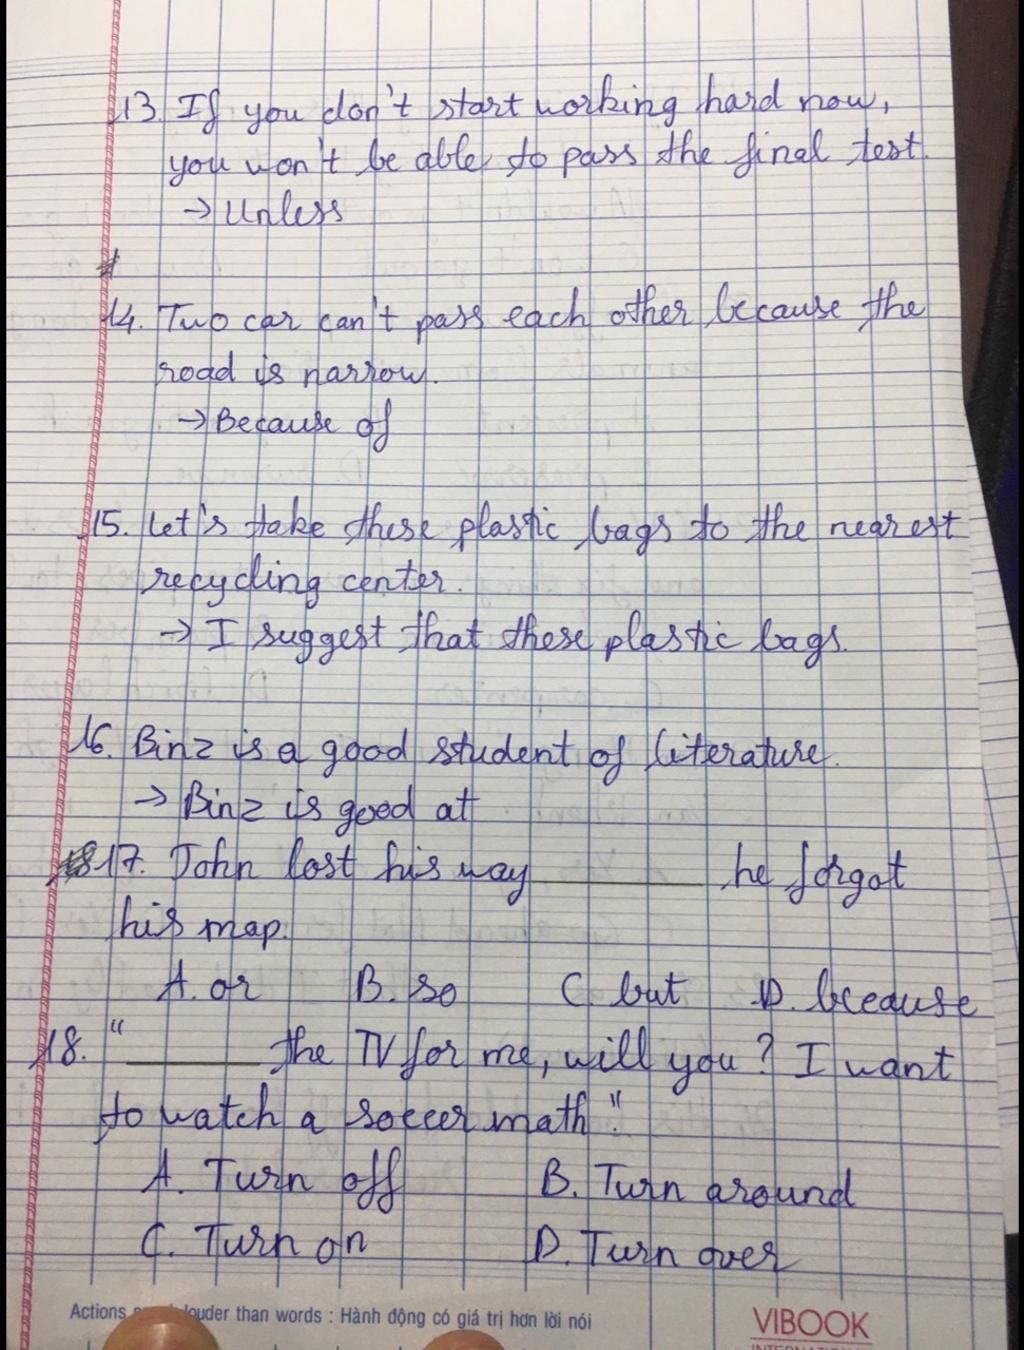 13. If you don't start working hard now,
you won't be able to pass the final test.
→ Unless
14. Two car can't pass each other because the
road is narrow.
→ Because of
15. Let's take these plastic bags to the nearest
recycling center.
→ I suggest that these plastic bags.
16. Binz is a good student of literature.
→ Binz is good at
17. John lost his way ________ he forgot
his map.
A. or B. so C. but D. beceause
18. "________ the TV for me, will you? I want
to watch a soccer math".
A. Turn off B. Turn around
C. Turn on D. Turn over
Actions louder than words : Hành động có giá trị hơn lời nói
VIBOOK